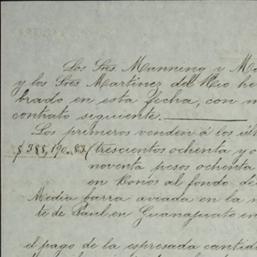 Los Sres Manning y M
y los Sres Martinez del Rio he
brado en esta fecha, con
contrato siguiente.
Los primeros venden á los
$388,190.83 (trescientos ochenta y o
noventa pesos ochenta
en Bonos al fondo de
Media barra aviada en la
te de Paul en Guanajuato
el pago de la espresada cantid